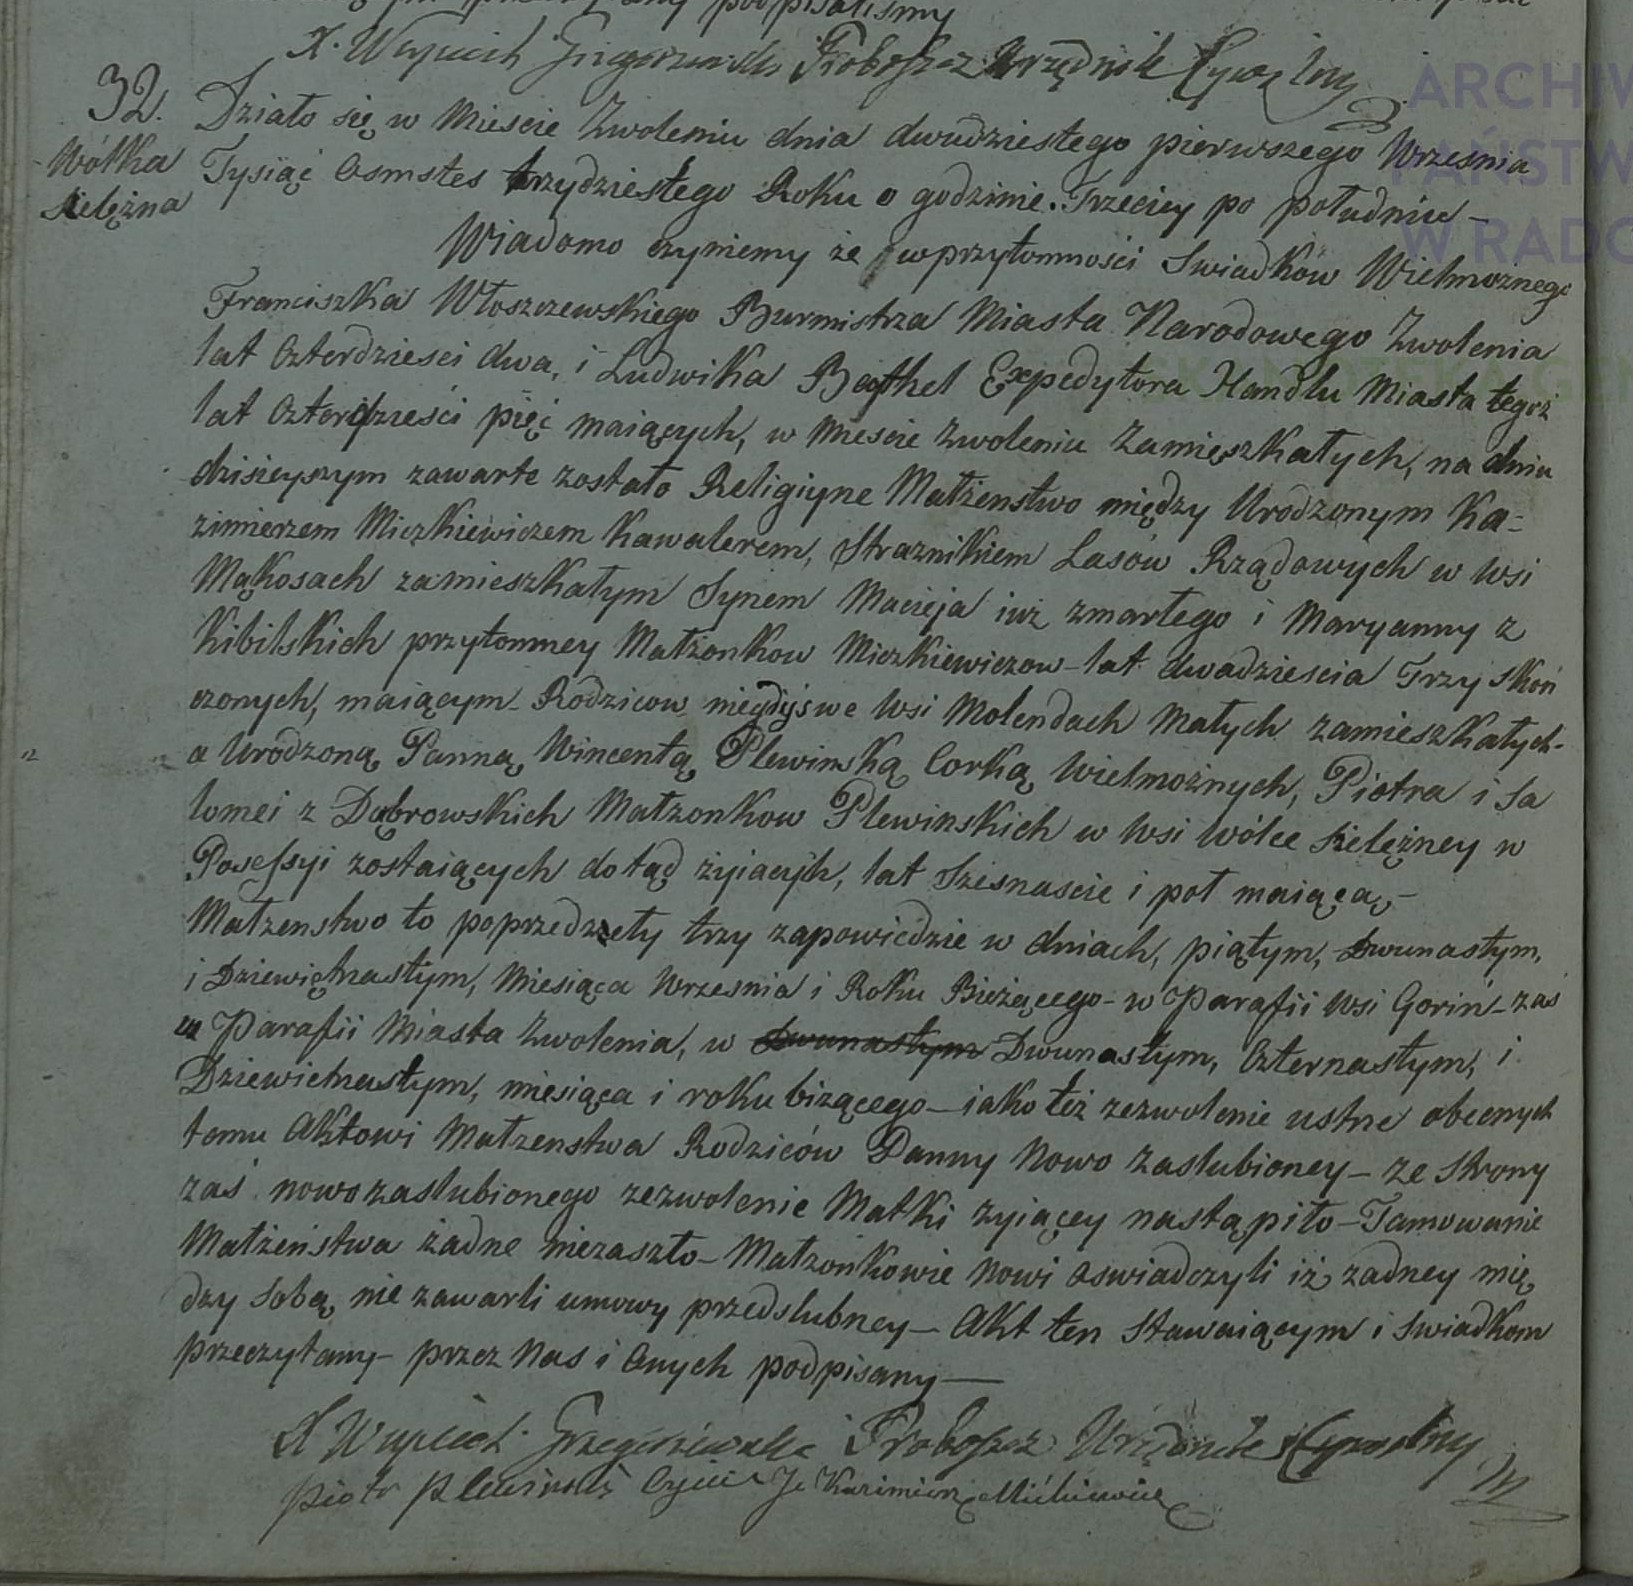 podpisaliśmy
X. Woyciech Grzegorzewski Proboszcz Urzędnik Cywilny
32.
Wólka
Sielężna
Działo się w Mieście Zwoleniu dnia dwudziestego pierwszego Wrzesnia
Tysiąc Osmset trzydziestego Roku o godzinie Trzeciey po południu -
Wiadomo czyniemy że w przytomności Swiadków Wielmożnego
Franciszka Włoszczewskiego Burmistrza Miasta Narodowego Zwolenia
lat Czterdziesci dwa, i Ludwika Expedytora Handlu Miasta tegoż
lat Czterdzieści pięć maiących, w Miescie Zwoleniu Zamięszkałych, na dniu
dzisieyszym zawarte zostało Religiyne Małżenstwo między Urodzonym Ka-
zimierzem Mickiewiczem Kawalerem, Straznikiem Lasów Rządowych w wsi
Mąkosach zamieszkałym Synem Macieja iuż zmarłego i Maryanny z
Kibilskich przytomney Małżonkow Mickiewiczow - lat dwadziescia Trzy skoń
czonych, maiącym - Rodzicow niegdyś we Wsi Molendach Małych zamieszkałych -
a Urodzoną Panną Wincentą Plewinską Corką Wielmożnych, Piotra i Sa
lomei z Dąbrowskich Małzonkow Plewinskich w wsi Wólce Sielężney w
Possessyi zostaiących dotąd żyiących, lat Szesnascie i poł maiącą, -
Małzenstwo to poprzedzeły trzy zapowiedzie w dniach, piątym, Dwunastym,
i Dziewiętnastym, Miesiąca Wrzesnia i Roku Bieżącego - w Parafii wsi Goriń - zaś
w Parafii Miasta Zwolenia, w Dwunastym Dwunastym, Czternastym, i
Dziewietnastym, miesiąca i roku biżącego - iako też zezwolenie ustne obecnych
temu Aktowi Małzenstwa Rodziców Panny Nowo Zaslubioney - ze strony
zaś nowo zaslubionego zezwolenie Matki zyiącey nastąpiło - Tamowanie
Małżeństwa żadne niezaszło - Małzonkowie Nowi oswiadczyli iż zadney mię
dzy sobą nie zawarli umowy przedslubney - Akt ten Stawaiącym i Swiadkom
przeczytany - przez Nas i Onych podpisany -
X Woyciech Grzegorzewski Proboszcz Urzędnik Cywilny
Piotr Plewinski Oyciec Kazimierz Mickiewicz
ARCHIW
PAŃSTW
W RADO